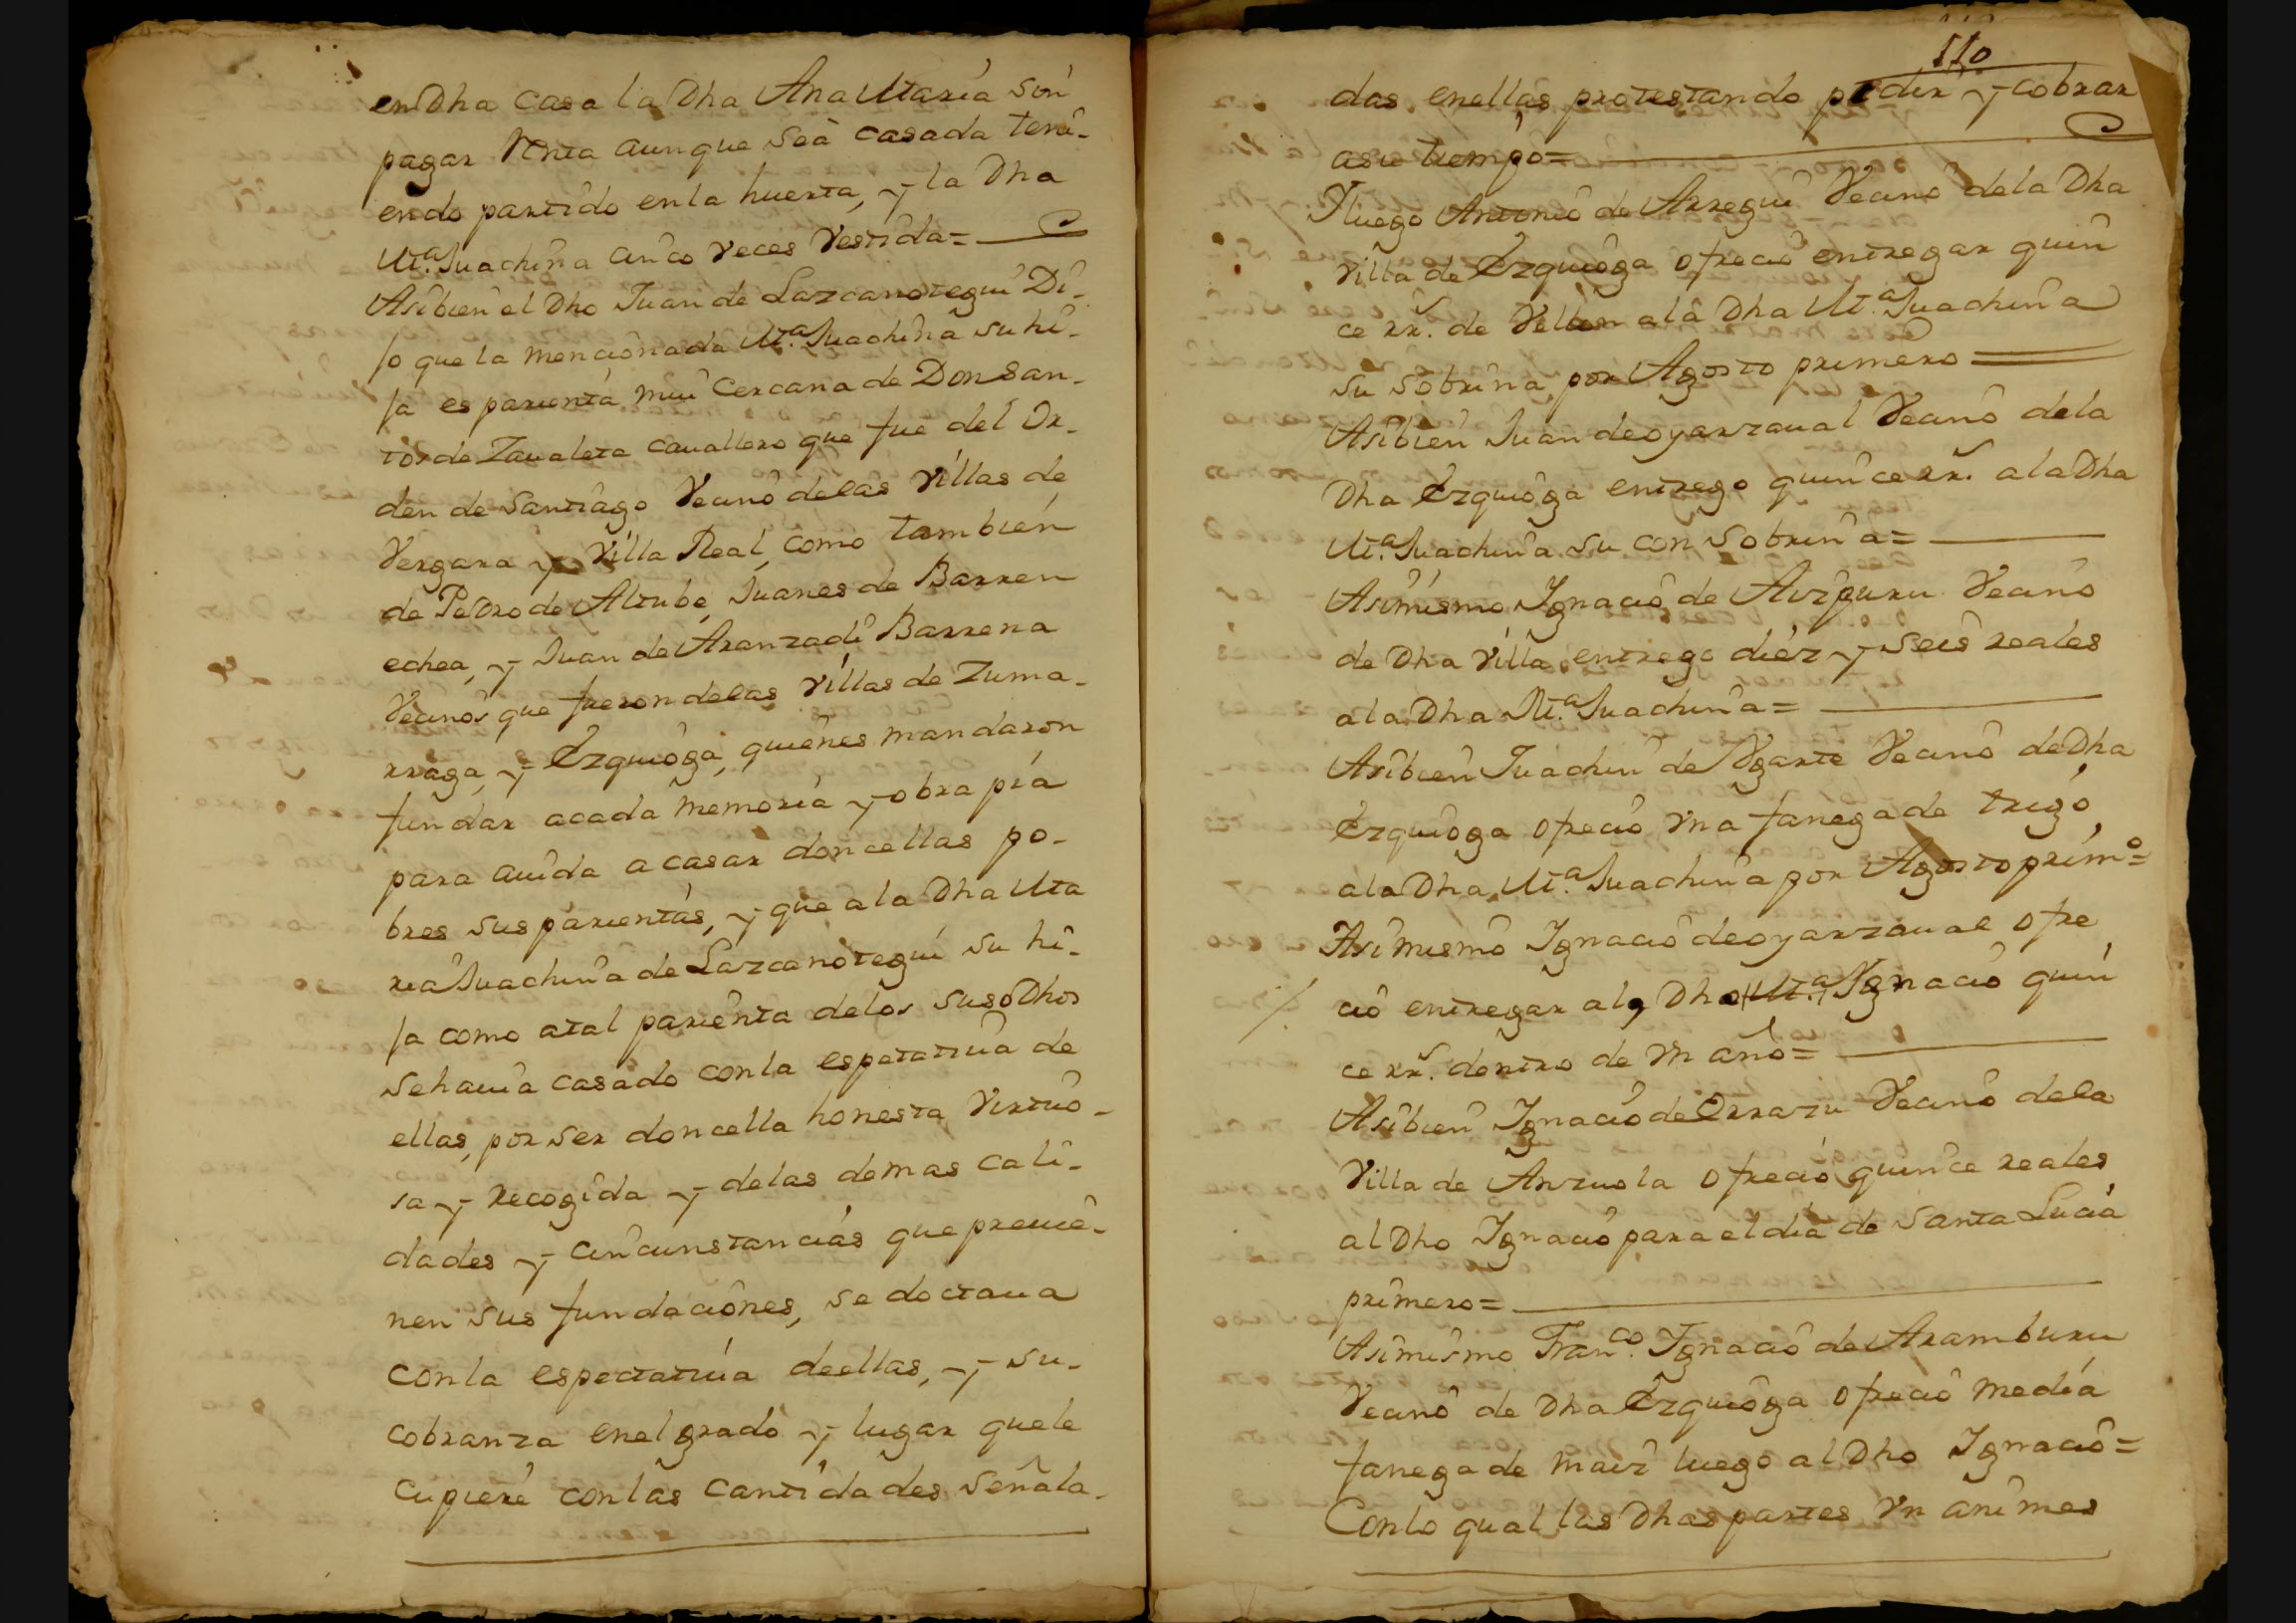 en Dha casa la Dha Ana Maria sin
pagar Renta aunque sea casada teni-
endo partido en la huerta, y la Dha
M.ª Juachina cinco veces vestida=
Asibien el Dho Juan de Lazcanotegui Di-
jo que la mencionada M.ª Juachina su hi-
ja es parienta mui cercana de Don San-
tos de Zaualeta cauallero que fue del Or-
den de Santiago Vecino delas Villas de
Vergara y Villa Real, como tambien
de Pedro de Altube, Juanes de Barren
echea, y Juan de Aranzadi Barrena
Vecinos que fueron delas Villas de Zuma-
rraga, y Ezquioga, quienes mandaron
fundar acada memoria y obra pia
para auida a casar doncellas po-
bres sus parientas, y que ala Dha Ma
ria Juachina de Lazcanotegui su hi-
ja como atal parienta delos susoDhos
se hauia casado conla espetatiua de
ellas, por ser doncella honesta Virtuo-
sa y Recogida y delas demas cali-
dades y circunstancias que preuie-
nen sus fundaciones, se doctaua
conla espectatiua deellas, y su-
cobranza enel grado y lugar quele
cupiere conlas cantidades señala-
110
das enellas protestando pedir y cobrar
asu tiempo=
Y luego Antonio de Arregui Vecino dela Dha
Villa de Ezquioga ofrecio entregar quin
ce rr.s de Vellon ala Dha M.ª Juachina
su sobrina, por Agosto primero
Asibien Juan deoyarzaual Vecino dela
Dha Ezquioga entrego quince rr.s ala Dha
M.ª Juachina su con sobrina=
Asimismo Ignacio de Aizpuru Vecino
de Dha Villa entrego diez y seis reales
ala Dha M.ª Juachina=
Asibien Juachin de Vgarte Vecino de Dha
Ezquioga ofrecio vna fanega de trigo
ala Dha M.ª Juachina por Agosto prim.º=
Asimismo Ignacio deoyarzaual ofre
cio entregar al Dho M.ª Ygnacio quin
ce rr.s dentro de vn año=
Asibien Ignacio de Orrazu Vecino dela
Villa de Anzuola ofrecio quince reales
al Dho Ignacio para el dia de Santa Lucia
primero=
Asimismo Fran.co Ignacio de Aramburu
Vecino de Dha Ezquioga ofrecio media
fanega de maiz luego al Dho Ignacio=
Conlo qual las Dhas partes vn animes